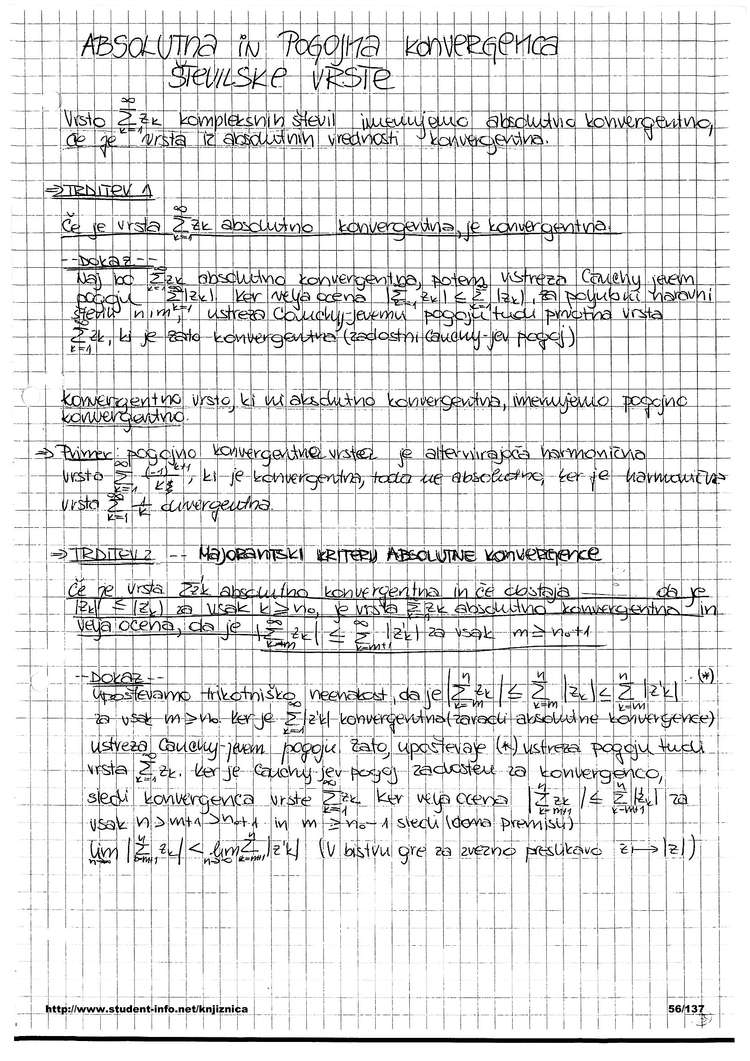 ABSOLUTNA IN POGOJNA KONVERGENCA
ŠTEVILSKE VRSTE
Vrsto ∑_{k=1}^∞ z_k kompleksnih števil imenujemo absolutno konvergentno,
če je vrsta iz absolutnih vrednosti konvergentna.
⇒ TRDITEV 1
Če je vrsta ∑_{k=1}^∞ z_k absolutno konvergentna, je konvergentna.
--DOKAZ--
Naj bo ∑_{k=1}^∞ z_k absolutno konvergentna, potem ustreza Cauchy jevem
pogoju ∑_{k=1}^∞ |z_k|. Ker velja ocena |∑ z_k| ≤ ∑ |z_k|, za poljubni naravni
števili n, m, ustreza Cauchy-jevemu pogoju tudi prvotna vrsta
∑_{k=1}^∞ z_k, ki je zato konvergentna (zadostni Cauchy-jev pogoj)
Konvergentno vrsto, ki ni absolutno konvergentna, imenujemo pogojno
konvergentno.
⇒ Primer: pogojno konvergentne vrste je alternirajoča harmonična
vrsta ∑_{k=1}^∞ (-1)^{k+1}/k, ki je konvergentna, toda ne absolutno, ker je harmonična
vrsta ∑_{k=1}^∞ 1/k divergentna.
⇒ TRDITEV 2 -- MAJORANTSKI KRITERIJ ABSOLUTNE KONVERGENCE
Če je vrsta ∑z'_k absolutno konvergentna in če obstaja da je
|z_k| ≤ |z'_k| za vsak k ≥ n₀, je vrsta ∑ z_k absolutno konvergentna in
velja ocena, da je |∑_{k=m}^∞ z_k| ≤ ∑_{k=m+1}^∞ |z'_k| za vsak m ≥ n₀+1
--DOKAZ--
Upoštevamo trikotniško neenakost, da je |∑_{k=m}^n z_k| ≤ ∑_{k=m}^n |z_k| ≤ ∑_{k=m}^n |z'_k| (*)
za vsak m ≥ n₀. Ker je ∑_{k=1}^∞ |z'_k| konvergentna (zaradi absolutne konvergence)
ustreza Cauchy-jevem pogoju. Zato, upoštevaje (*) ustreza pogoju tudi
vrsta ∑_{k=1}^∞ z_k. Ker je Cauchy-jev pogoj zadosten za konvergenco,
sledi konvergenca vrste ∑_{k=1}^∞ z_k. Ker velja ocena |∑_{k=m+1}^n z_k| ≤ ∑_{k=m+1}^n |z'_k| za
vsak n > m+1 > n₀+1 in m ≥ n₀-1 sledi
lim_{n→∞} |∑_{k=m+1}^n z_k| < lim_{n→∞} ∑_{k=m+1}^n |z'_k| (V bistvu gre za zvezno preslikavo z ↦ |z|)
http://www.student-info.net/knjiznica 56/137